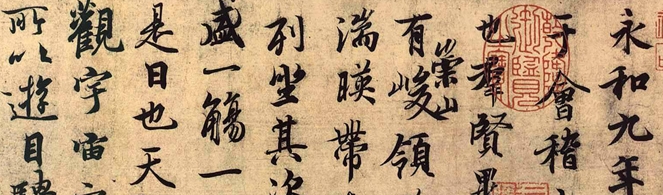 永和九年
于會稽
也羣賢畢
有崇山峻領
湍暎帶
列坐其次
盛一觴一
是日也天
觀宇宙
所以遊目騁